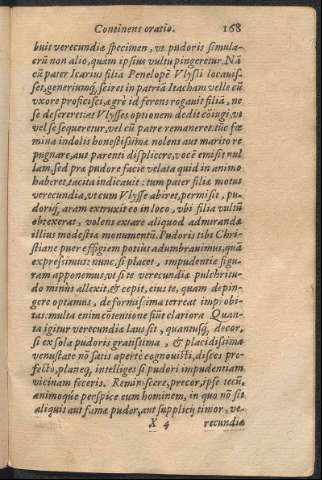 Continens oratio. 168
buit verecundiæ specimen, vt pudoris simula-
crũ non alio, quàm ipsius vultu pingeretur. Nã
cũ pater Icarius filiã Penelopẽ Vlyssi locauis-
set, generiumq́; sciret in patriã Itacham velle cũ
vxore proficisci, ægrè id ferens rogauit filiã, ne
se desereret: at Vlysses optionem dedit cõiugi, vt
vel se sequeretur, vel cũ patre remaneret. tũc fœ
mina indolis honestissimæ nolens aut marito re
pugnare, aut parenti displicere, vocẽ emisit nul
lam, sed pra pudore facie velata quid in animo
haberet, tacita indicauit: tum pater filiæ motus
verecundia, vt cum Vlysse abiret, permisit, pu-
doriq́; aram extruxit eo in loco, vbi filia vultũ
obtexerat, volens extare aliquod admirandæ
illius modestiæ monumentũ. Pudoris tibi Chri-
stiane puer effigiem potiùs adumbrauimus, quã
expressimus: nunc, si placet, impudentiæ figu-
ram apponemus, vt si te verecundiæ pulchritu-
do minùs allexit, & cepit, eius te, quam depin-
gere optamus, deformissima terreat improbi-
tas: multa enim cõtentione fiũt clariora. Quan-
ta igitur verecundiæ laus sit, quantusq́; decor,
si ex sola pudoris gratissima, & placidissima
venustate nõ satis apertè cognouisti, disces pro-
fectò, planeq́; intelliges si pudori impudentiam
vicinam feceris. Reminiscere, precor, ipse tecũ,
animoque perspice eum hominem, in quo nõ sit
aliquis aut famæ pudor, aut supplicij timor, ve-
X 4 recundiæ